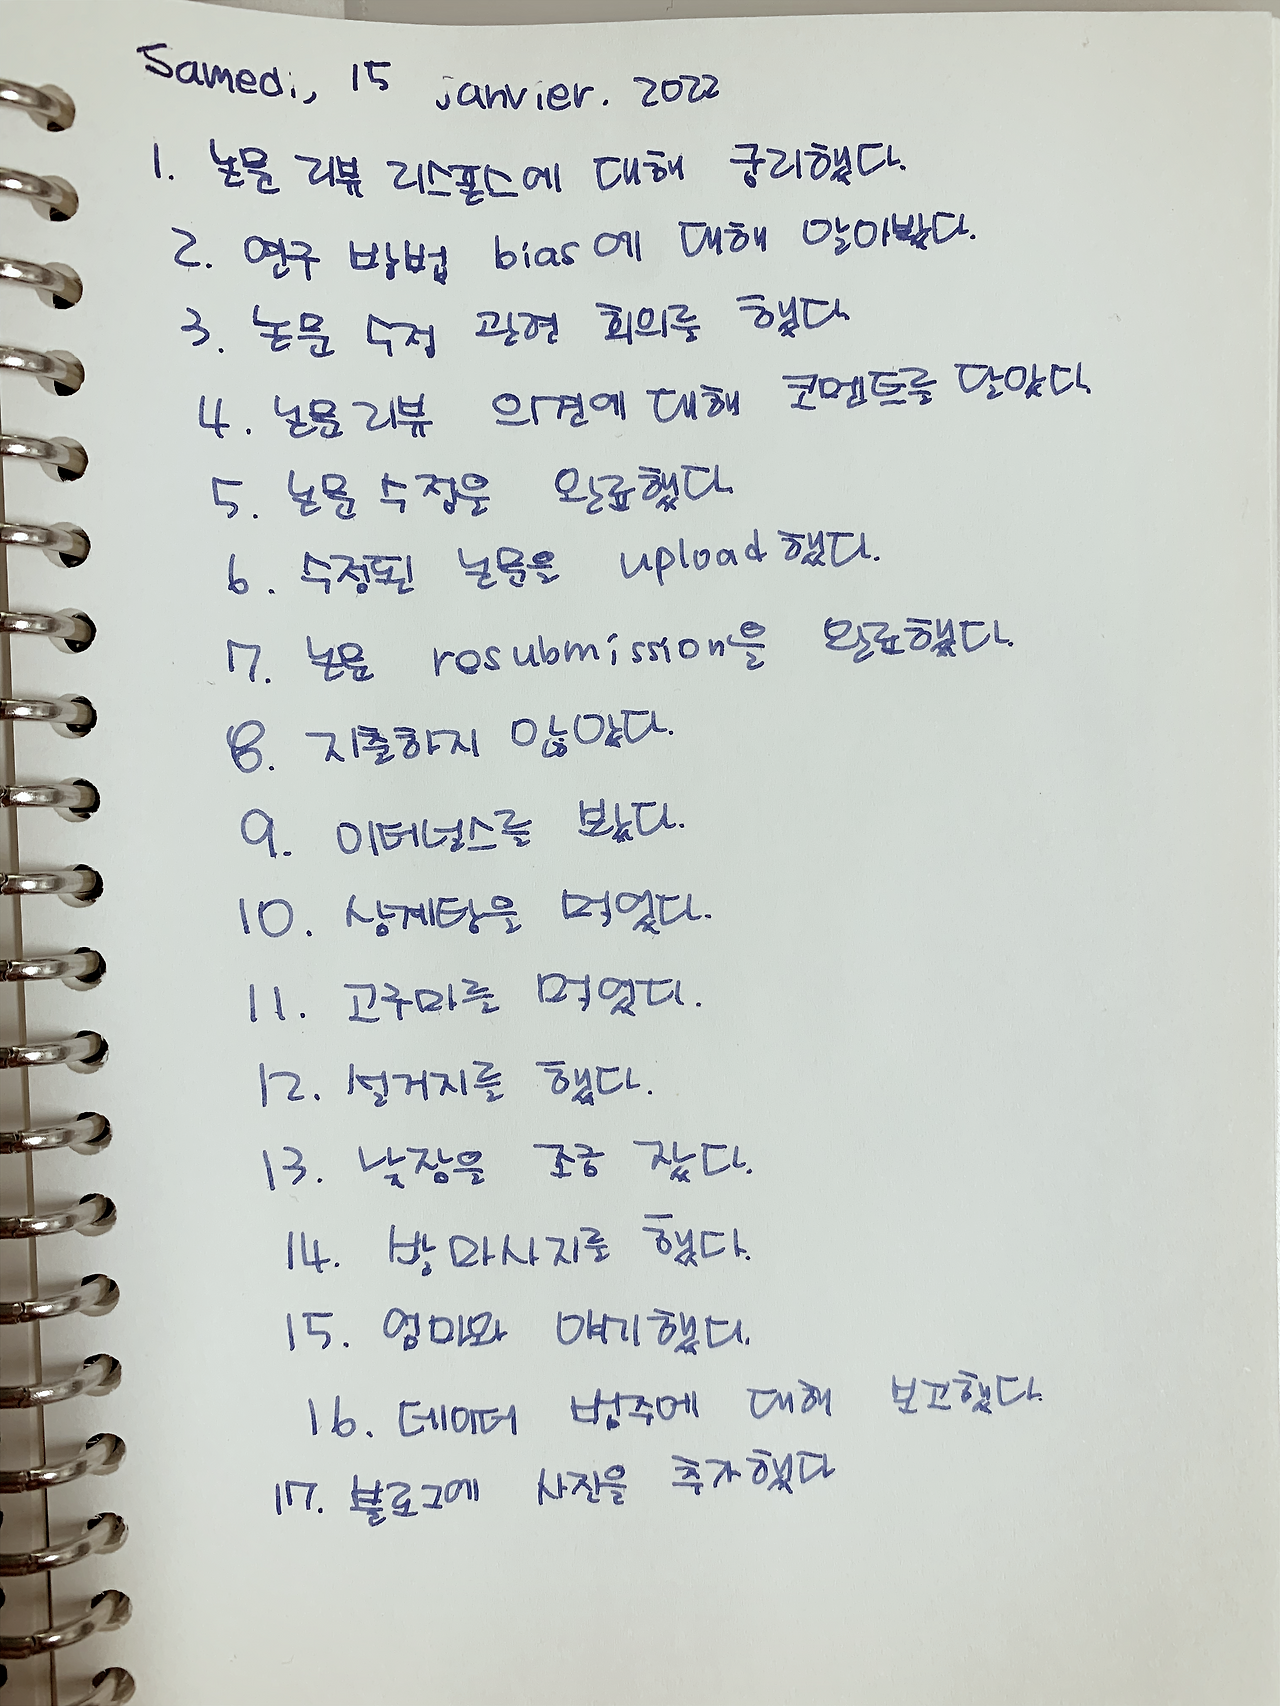 Samedi, 15 janvier. 2022
1. 논문 리뷰 리스폰스에 대해 궁리했다.
2. 연구 방법 bias에 대해 알아봤다.
3. 논문 수정 관련 회의를 했다
4. 논문리뷰 의견에 대해 코멘트를 달았다.
5. 논문 수정을 완료했다
6. 수정된 논문을 upload했다.
7. 논문 resubmission을 완료했다.
8. 지출하지 않았다.
9. 이터널스를 봤다.
10. 삼계탕을 먹었다.
11. 고구마를 먹었다.
12. 설거지를 했다.
13. 낮잠을 조금 잤다.
14. 발 마사지를 했다.
15. 엄마와 얘기했다.
16. 데이터 범주에 대해 보고했다.
17. 블로그에 사진을 추가했다